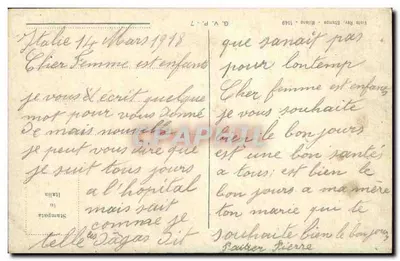 Italie 14 Mars 1918
Cher Femme est enfant
je vous écrit quelque
mot pour vous donné
De mais nouvelle
je peut vous dire que
je suit tous jours
a l'hôpital
mais sait
comme je
telle Dit
que sanait pas
pour lontemp
Cher femme est enfant
je vous souhaite
bien le bon jours
est une bon santés
a tous est bien le
bon jours a ma mère
ton marie qui te
souhaite bien le bon jour
Pierre
G. V. P. - 7
Stampata
in
Italia